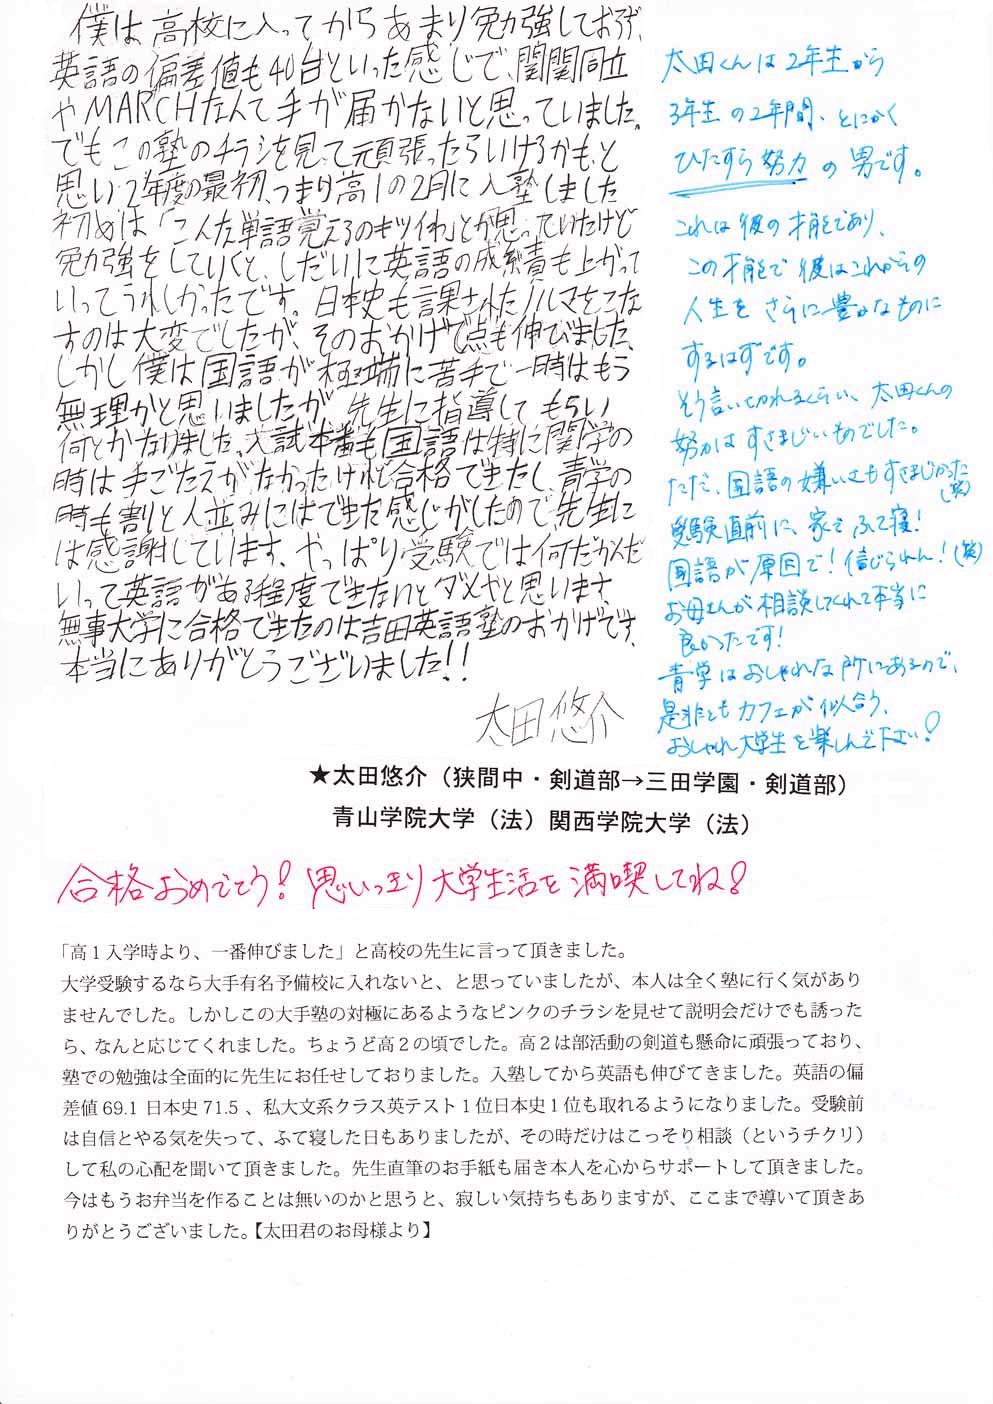 僕は高校に入ってからあまり勉強しておらず、
英語の偏差値も40台といった感じで、関関同立
やMARCHなんて手が届かないと思っていました。
でもこの塾のチラシを見て頑張ったらいけるかも、と
思い2年度の最初、つまり高1の2月に入塾しました
初めは「こんな単語覚えるのキツイわ」とか思っていたけど
勉強をしていくと、しだいに英語の成績も上がって
いってうれしかったです。日本史も課されたノルマをこな
すのは大変でしたが、そのおかげで点も伸びました、
しかし僕は国語が極端に苦手で一時はもう
無理かと思いましたが、先生に指導してもらい
何とかなりました、入試本番も国語は特に関学の
時は手ごたえがなかったけれど合格できたし、青学の
時も割と人並みにはできた感じがしたので、先生に
は感謝しています、やっぱり受験では何だかんだ
いって英語がある程度できないとダメやと思います
無事大学に合格できたのは吉田英語塾のおかげです、
本当にありがとうございました!!
太田悠介
太田くんは2年生から
3年生の2年間、とにかく
ひたすら努力の男です。
これは彼の才能であり、
この才能で彼はこれからの
人生をさらに豊かなものに
するはずです。
そう言い切れるくらい、太田くんの
努力はすさまじいものでした。
ただ、国語の嫌いさもすさまじかった
(笑)
受験直前に、家でふて寝!
国語が原因で!信じられん!(笑)
お母さんが相談してくれて本当に
良かったです!
青学はおしゃれな所にあるので、
是非ともカフェが似合う、
おしゃれ大学生を楽しんで下さい!
★太田悠介（狭間中・剣道部→三田学園・剣道部）
青山学院大学（法）関西学院大学（法）
合格おめでとう!思いっきり大学生活を満喫してね!
「高1入学時より、一番伸びました」と高校の先生に言って頂きました。
大学受験するなら大手有名予備校に入れないと、と思っていましたが、本人は全く塾に行く気があり
ませんでした。しかしこの大手塾の対極にあるようなピンクのチラシを見せて説明会だけでも誘った
ら、なんと応じてくれました。ちょうど高2の頃でした。高2は部活動の剣道も懸命に頑張っており、
塾での勉強は全面的に先生にお任せしておりました。入塾してから英語も伸びてきました。英語の偏
差値69.1日本史71.5、私大文系クラス英テスト1位日本史1位も取れるようになりました。受験前
は自信とやる気を失って、ふて寝した日もありましたが、その時だけはこっそり相談（というチクリ）
して私の心配を聞いて頂きました。先生直筆のお手紙も届き本人を心からサポートして頂きました。
今はもうお弁当を作ることは無いのかと思うと、寂しい気持ちもありますが、ここまで導いて頂きあ
りがとうございました。【太田君のお母様より】